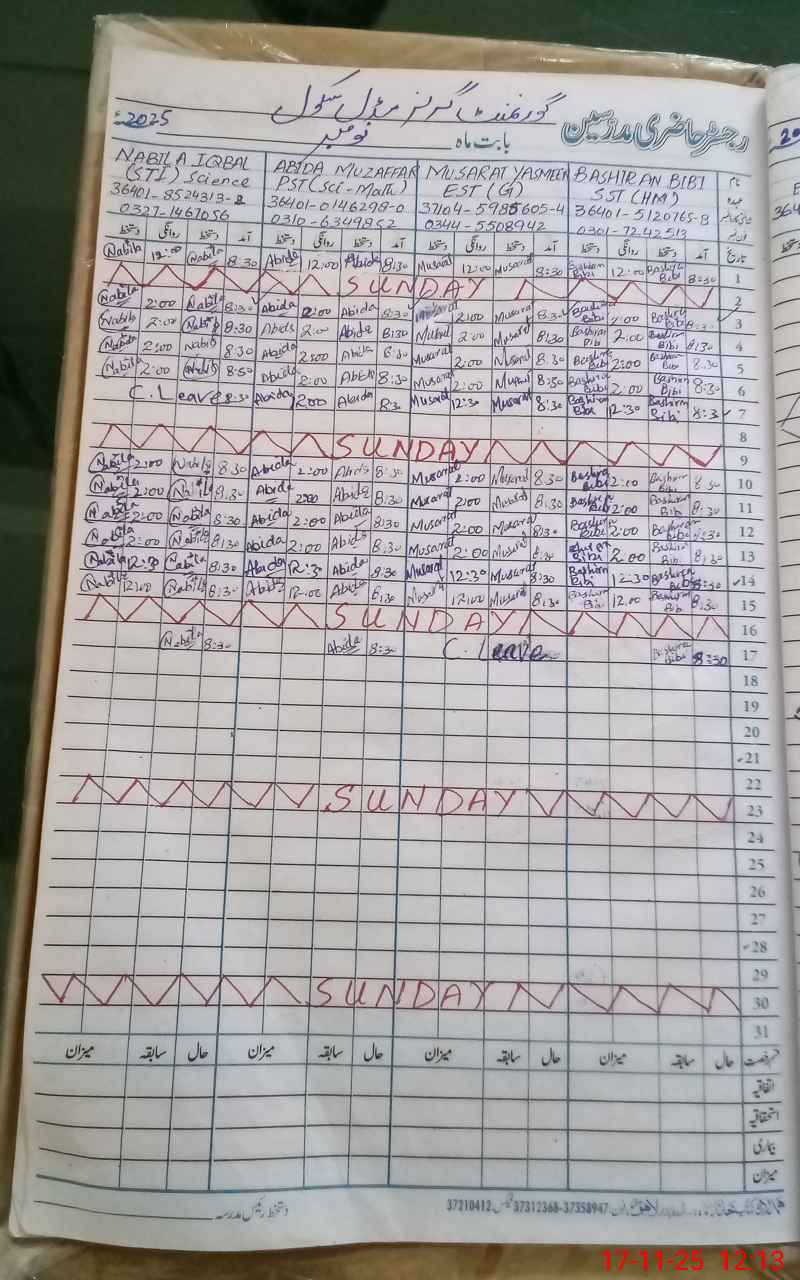 گورنمنٹ گرلز مڈل سکول
رجسٹر حاضری مدرسین بابت ماہ نومبر 2025ء
NABILA IQBAL ABIDA MUZAFFAR MUSARAT YASMEEN BASHIRAN BIBI نام
(STI) Science PST (Sci-Math) EST (G) SST (HM) عہدہ
36401-8524313-2 36401-0146298-0 37104-5985605-4 36401-5120765-8
0327-1467056 0310-6349862 0344-5508942 0301-7242513
دستخط روانگی دستخط آمد دستخط روانگی دستخط آمد دستخط روانگی دستخط آمد دستخط روانگی دستخط آمد تاریخ
Nabila 12:00 Nabila 8:30 Abida 12:00 Abida 8:30 Musarat 12:00 Musarat 8:30 Bashiran Bibi 12:00 Bashiran Bibi 8:30 1
SUNDAY 2
Nabila 2:00 Nabila 8:30 Abida 2:00 Abida 8:30 Musarat 2:00 Musarat 8:30 Bashiran Bibi 2:00 Bashiran Bibi 8:30 3
Nabila 2:00 Nabila 8:30 Abida 2:00 Abida 8:30 Musarat 2:00 Musarat 8:30 Bashiran Bibi 2:00 Bashiran Bibi 8:30 4
Nabila 2:00 Nabila 8:30 Abida 2:00 Abida 8:30 Musarat 2:00 Musarat 8:30 Bashiran Bibi 2:00 Bashiran Bibi 8:30 5
Nabila 2:00 Nabila 8:30 Abida 2:00 Abida 8:30 Musarat 2:00 Musarat 8:30 Bashiran Bibi 2:00 Bashiran Bibi 8:30 6
C. Leave 8:30 Abida 2:00 Abida 8:30 Musarat 12:30 Musarat 8:30 Bashiran Bibi 12:30 Bashiran Bibi 8:30 7
8
SUNDAY 9
Nabila 2:00 Nabila 8:30 Abida 2:00 Abida 8:30 Musarat 2:00 Musarat 8:30 Bashiran Bibi 2:00 Bashiran Bibi 8:30 10
Nabila 2:00 Nabila 8:30 Abida 2:00 Abida 8:30 Musarat 2:00 Musarat 8:30 Bashiran Bibi 2:00 Bashiran Bibi 8:30 11
Nabila 2:00 Nabila 8:30 Abida 2:00 Abida 8:30 Musarat 2:00 Musarat 8:30 Bashiran Bibi 2:00 Bashiran Bibi 8:30 12
Nabila 2:00 Nabila 8:30 Abida 2:00 Abida 8:30 Musarat 2:00 Musarat 8:30 Bibi 2:00 Bashiran Bibi 8:30 13
Nabila 12:30 Nabila 8:30 Abida 12:30 Abida 8:30 Musarat 12:30 Musarat 8:30 Bashiran Bibi 12:30 Bashiran Bibi 8:30 14
Nabila 12:00 Nabila 8:30 Abida 12:00 Abida 8:30 Musarat 12:00 Musarat 8:30 Bashiran Bibi 12:00 Bashiran Bibi 8:30 15
SUNDAY 16
Nabila 8:30 Abida 8:30 C. Leave Bashiran Bibi 8:30 17
18
19
20
21
22
SUNDAY 23
24
25
26
27
28
29
SUNDAY 30
31
میزان سابقہ حال میزان سابقہ حال میزان سابقہ حال میزان سابقہ حال قسم رخصت
اتفاقیہ
استحقاقیہ
بیماری
میزان
دستخط رئیس مدرسہ
37358947-37312368 37210412
17-11-25 12:13